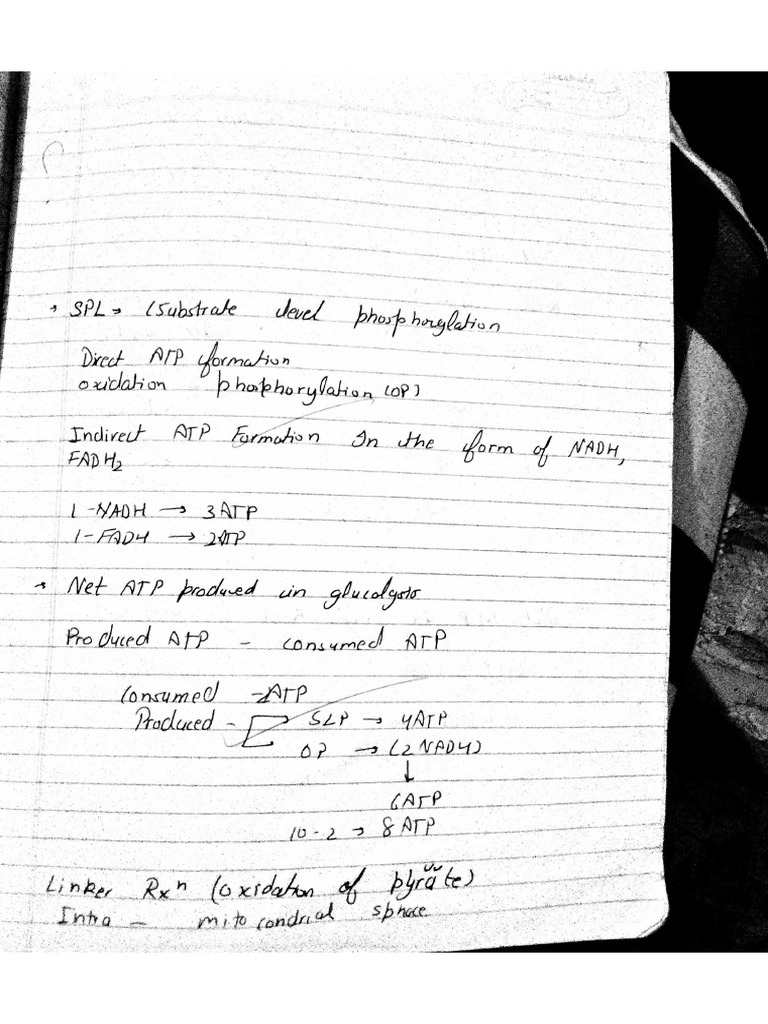 → SPL → (Substrate level phosphorylation
Direct ATP formation
oxidation phosphorylation (OP)
Indirect ATP Formation In the form of NADH,
FADH2
1-NADH → 3ATP
1-FADH → 2ATP
→ Net ATP produced in glucolysis
Produced ATP - consumed ATP
Consumed - 2ATP
Produced - SLP → 4ATP
OP → (2 NADH)
↓
6ATP
10-2 → 8ATP
Linker Rxn (oxidation of pyruvate)
Intra - mitocondrial sphace